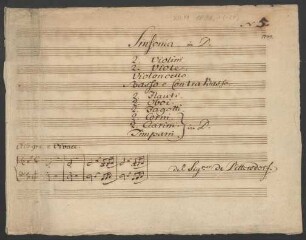 No. 5
Sinfonia in D.
2 Violini
2 Viole
Violoncello
Basso e Contra Basso
2 Flauti
2 Oboi
2 Fagotti
2 Corni
2 Clarini in D.
Timpani
Allegro e Vivace
del Sigre de Dittersdorf